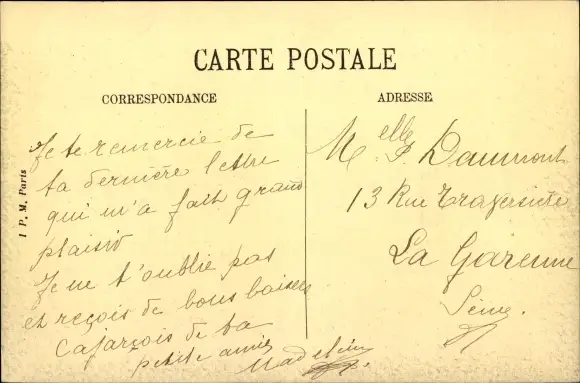 CARTE POSTALE
CORRESPONDANCE
ADRESSE
I P. M. Paris
Je te remercie de
ta dernière lettre
qui m'a fait grand
plaisir
Je ne t'oublie pas
et reçois de bons baisers
de ta
petite amie
Madeleine
Melle Daumont
13 Rue Traversière
La Garenne
Seine.